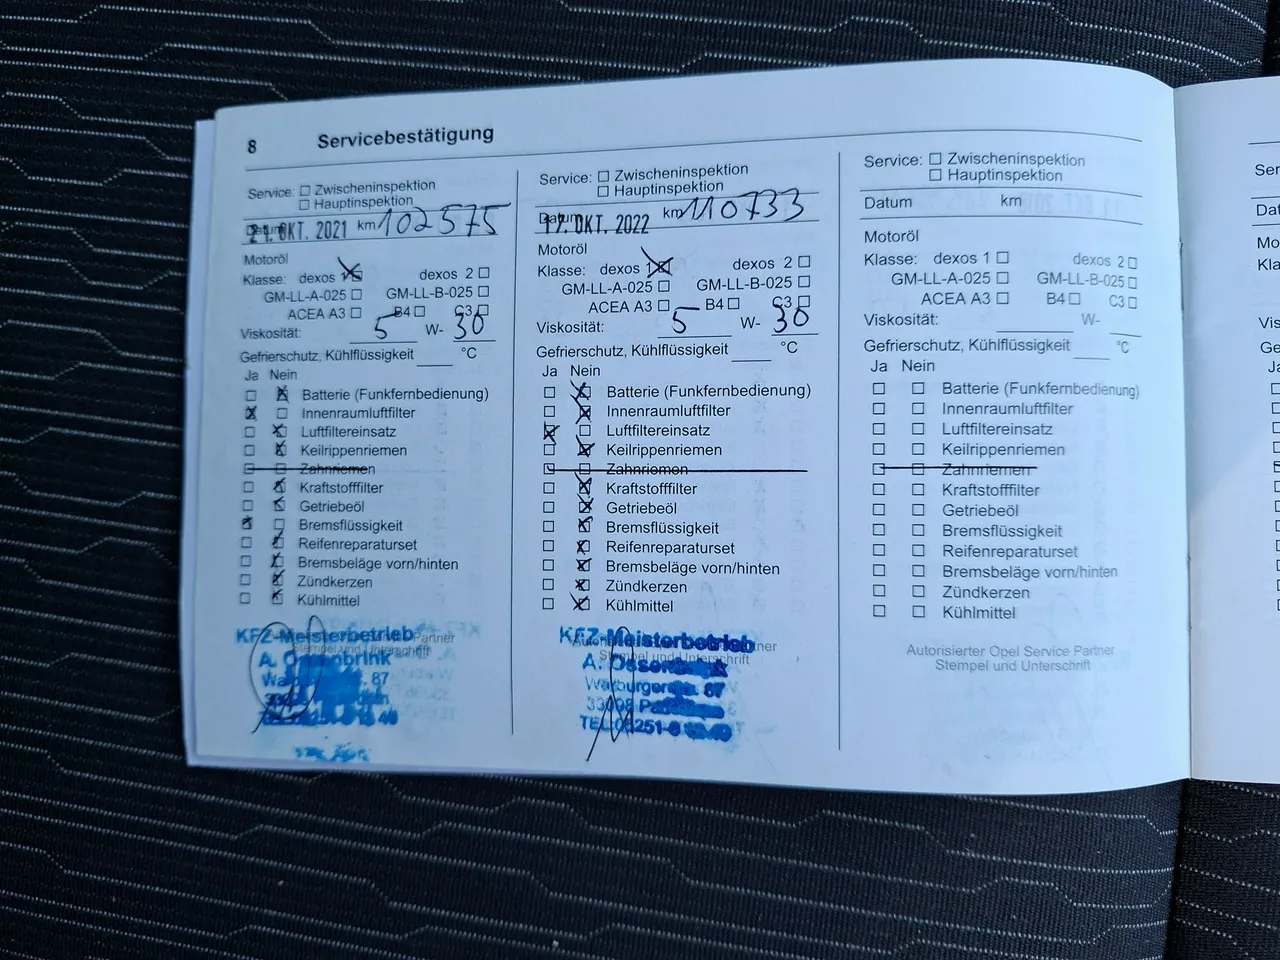 8 Servicebestätigung
Service: ☐ Zwischeninspektion
☐ Hauptinspektion
Datum 21. OKT. 2021 km 102575
Motoröl
Klasse: dexos 1 ☒ dexos 2 ☐
GM-LL-A-025 ☐ GM-LL-B-025 ☐
ACEA A3 ☐ B4 ☐ C3 ☐
Viskosität: 5 W- 30
Gefrierschutz, Kühlflüssigkeit ____ °C
Ja Nein
☐ ☒ Batterie (Funkfernbedienung)
☒ ☐ Innenraumluftfilter
☐ ☒ Luftfiltereinsatz
☐ ☒ Keilrippenriemen
☐ ☐ Zahnriemen
☐ ☒ Kraftstofffilter
☐ ☒ Getriebeöl
☒ ☐ Bremsflüssigkeit
☐ ☒ Reifenreparaturset
☐ ☒ Bremsbeläge vorn/hinten
☐ ☒ Zündkerzen
☐ ☒ Kühlmittel
KFZ-Meisterbetrieb Partner
Stempel und Unterschrift
A.
87
Service: ☐ Zwischeninspektion
☐ Hauptinspektion
Datum 17. OKT. 2022 km 110733
Motoröl
Klasse: dexos 1 ☒ dexos 2 ☐
GM-LL-A-025 ☐ GM-LL-B-025 ☐
ACEA A3 ☐ B4 ☐ C3 ☐
Viskosität: 5 W- 30
Gefrierschutz, Kühlflüssigkeit ____ °C
Ja Nein
☐ ☒ Batterie (Funkfernbedienung)
☐ ☒ Innenraumluftfilter
☒ ☐ Luftfiltereinsatz
☐ ☒ Keilrippenriemen
☐ ☐ Zahnriemen
☐ ☒ Kraftstofffilter
☐ ☒ Getriebeöl
☐ ☒ Bremsflüssigkeit
☐ ☒ Reifenreparaturset
☐ ☒ Bremsbeläge vorn/hinten
☐ ☒ Zündkerzen
☐ ☒ Kühlmittel
KFZ-Meisterbetrieb
Stempel und Unterschrift
A.
Warburgerstr. 87
Service: ☐ Zwischeninspektion
☐ Hauptinspektion
Datum km
Motoröl
Klasse: dexos 1 ☐ dexos 2 ☐
GM-LL-A-025 ☐ GM-LL-B-025 ☐
ACEA A3 ☐ B4 ☐ C3 ☐
Viskosität: ____ W- ____
Gefrierschutz, Kühlflüssigkeit ____ °C
Ja Nein
☐ ☐ Batterie (Funkfernbedienung)
☐ ☐ Innenraumluftfilter
☐ ☐ Luftfiltereinsatz
☐ ☐ Keilrippenriemen
☐ ☐ Zahnriemen
☐ ☐ Kraftstofffilter
☐ ☐ Getriebeöl
☐ ☐ Bremsflüssigkeit
☐ ☐ Reifenreparaturset
☐ ☐ Bremsbeläge vorn/hinten
☐ ☐ Zündkerzen
☐ ☐ Kühlmittel
Autorisierter Opel Service Partner
Stempel und Unterschrift